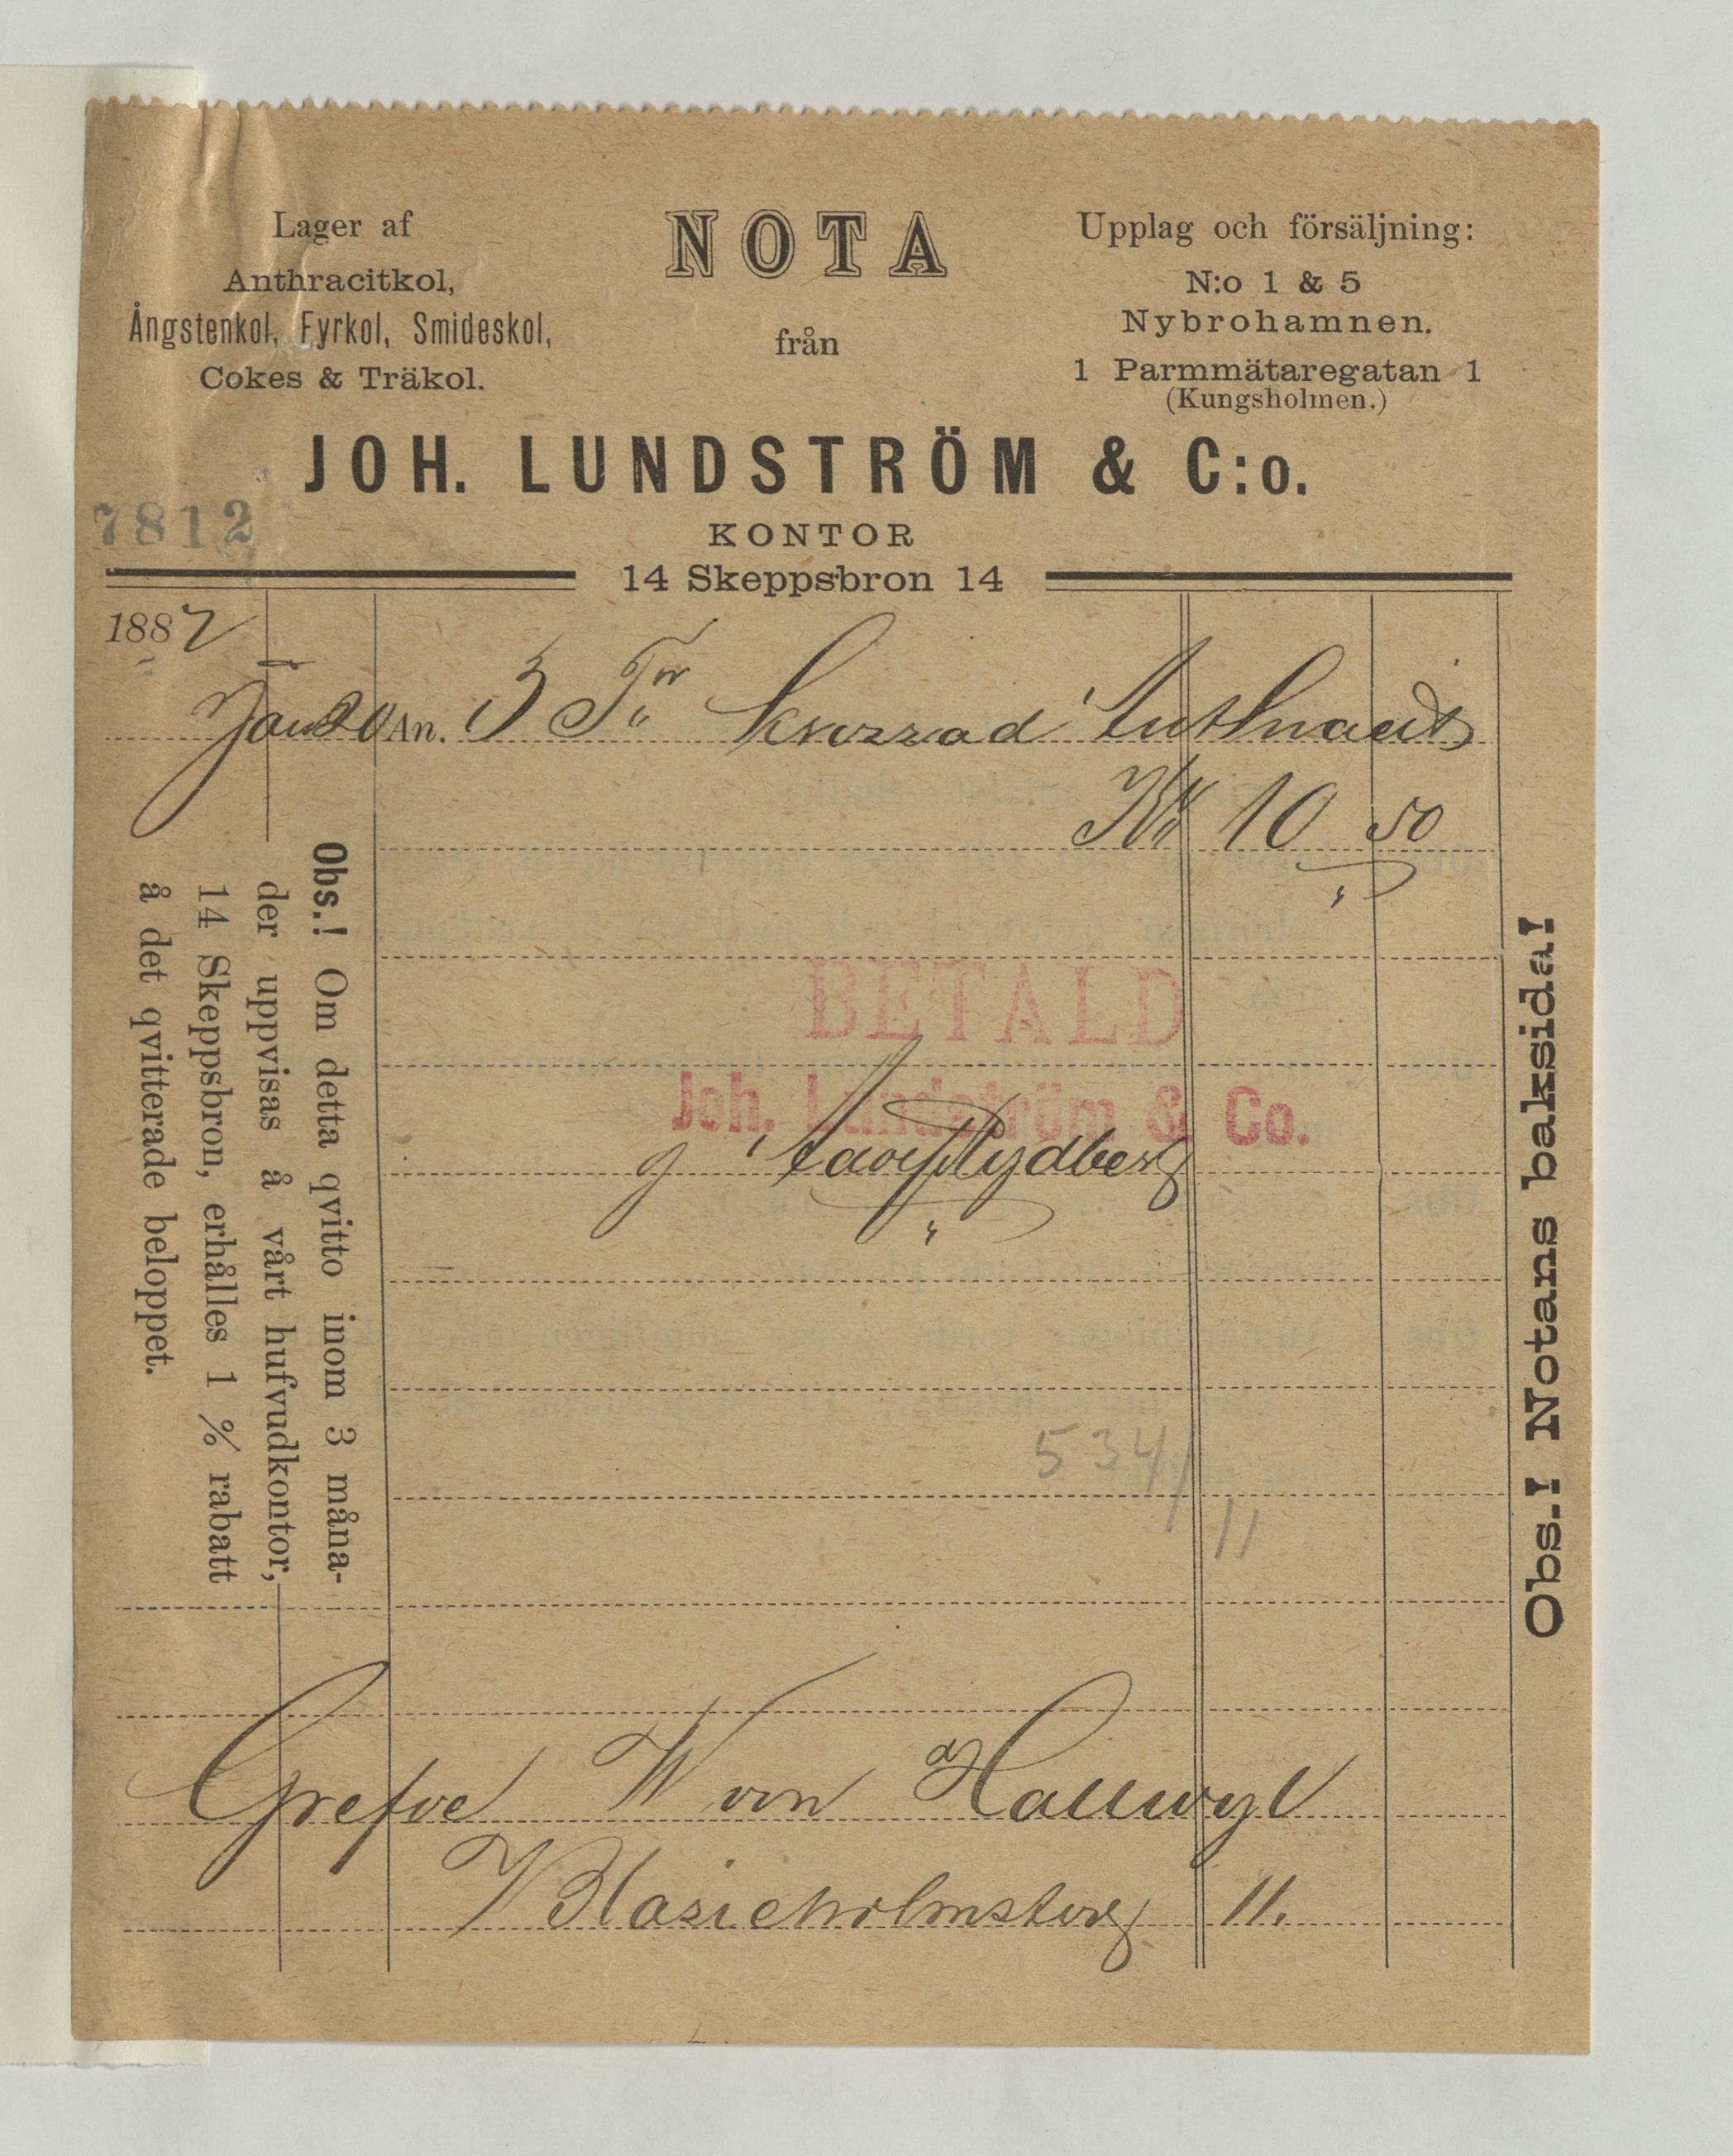 Lager af
Anthracitkol,
Ångstenkol, Fyrkol, Smideskol,
Cokes & Träkol.
NOTA
från
Upplag och försäljning:
N:o 1 & 5
Nybrohamnen.
1 Parmmätaregatan 1
(Kungsholmen.)
JOH. LUNDSTRÖM & C:o.
7812
KONTOR
14 Skeppsbron 14
1887
Jan 20 An. 3 Tr krossad
Kr 10 50
BETALD
Joh. Lundström & Co.
Rydberg
534/11
Obs.! Om detta qvitto inom 3 måna-
der uppvisas å vårt hufvudkontor,
14 Skeppsbron, erhålles 1 % rabatt
å det qvitterade beloppet.
Obs.! Notans baksida!
Grefve W von Hallwyl
Blasieholmstorg 11.